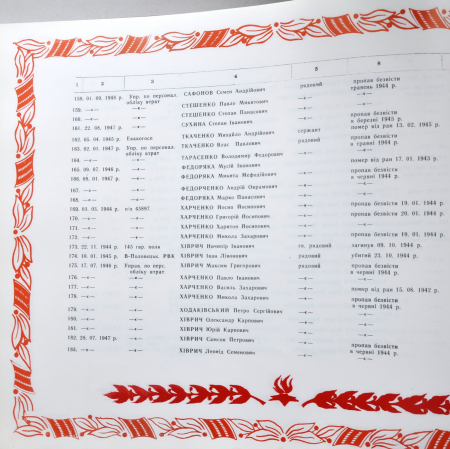 1 2 3 4 5 6
158. 01. 09. 1948 р. Упр. по персонал. обліку втрат САФОНОВ Семен Андрійович рядовий пропав безвісти травень 1944 р.
159. —«— —«— СТЕЦЕНКО Павло Микитович —«— —«—
160. —«— —«— СТЕЦЕНКО Степан Панасович —«— пропав безвісти в березні 1945 р.
161. 22. 08. 1947 р. —«— СУХИНА Степан Іванович —«— помер від ран 13. 02. 1945 р.
162. 05. 04. 1945 р. ТКАЧЕНКО Михайло Андрійович сержант пропав безвісти
163. 02. 01. 1947 р. Упр. по персонал. обліку втрат ТКАЧЕНКО Влас Павлович рядовий в травні 1944 р.
164. —«— —«— ТАРАСЕНКО Володимир Федорович —«— помер від ран 17. 01. 1945 р.
165. 09. 07. 1946 р. —«— ФЕДОРЯКА Мусій Іванович —«— пропав безвісти
166. 09. 01. 1947 р. —«— ФЕДОРЯКА Микита Мефодійович —«— в червні 1944 р.
167. —«— —«— ФЕДОРЧЕНКО Андрій Оврамович —«— —«—
168. —«— —«— ФЕДОРЯКА Марко Панасович —«— —«—
169. 03. 01. 1944 р. п/п 65897 ХАРЧЕНКО Йосип Йосипович —«— пропав безвісти 19. 01. 1944 р.
170. —«— —«— ХАРЧЕНКО Григорій Йосипович —«— пропав безвісти 20. 01. 1944 р.
171. —«— —«— ХАРЧЕНКО Харитон Йосипович —«— —«—
172. —«— —«— ХАРЧЕНКО Микола Захарович —«— пропав безвісти 19. 01. 1944 р.
173. 22. 11. 1944 р. 145 гв. полк ХІВРИЧ Ничипір Іванович гв. рядовий загинув 09. 10. 1944 р.
174. 16. 01. 1945 р. В-Половецьк. РВК ХІВРИЧ Іван Лівонович рядовий убитий 23. 10. 1944 р.
175. 17. 07. 1946 р. Управ. по перс. обліку втрат ХІВРИЧ Максим Григорович рядовий пропав безвісти в червні 1944 р.
176. —«— —«— ХАРЧЕНКО Павло Іванович —«— —«—
177. —«— —«— ХАРЧЕНКО Василь Захарович —«— помер від ран 15. 08. 1942 р.
178. —«— —«— ХАРЧЕНКО Микола Захарович —«— пропав безвісти в червні 1944 р.
179. —«— —«— ХОДАКІВСЬКИЙ Петро Сергійович —«— —«—
180. —«— —«— ХІВРИЧ Олександр Карпович —«— —«—
181. —«— —«— ХІВРИЧ Юрій Карпович —«— —«—
182. 28. 07. 1947 р. —«— ХІВРИЧ Самсон Петрович —«— —«—
183. —«— —«— ХІВРИЧ Леонід Семенович —«— пропав безвісти в червні 1944 р.